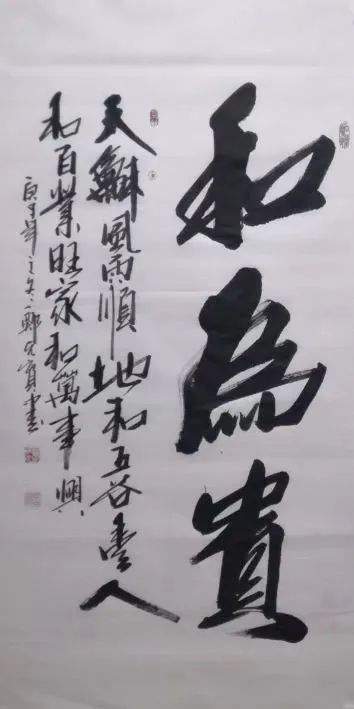 和為貴
天龢風雨順地和五谷豊人
和百業旺家和萬事興
庚子年之冬鄭元寶書